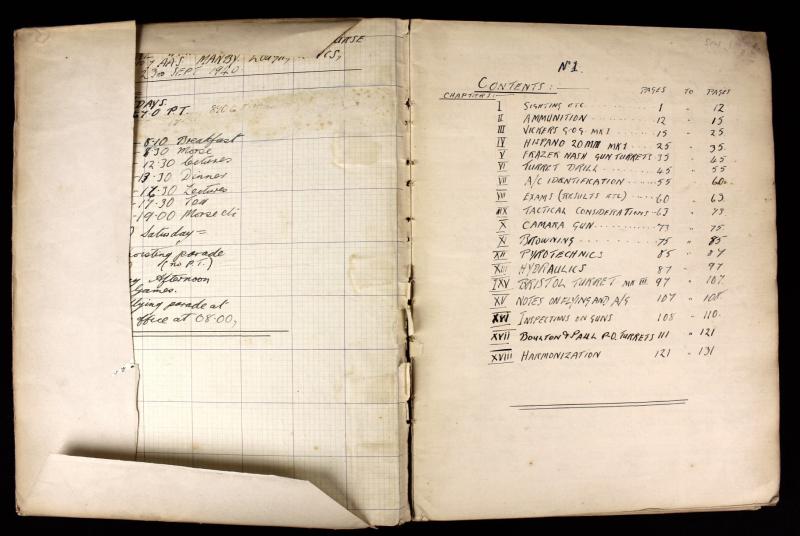 AAS MANBY
23RD SEPT 1940
DAYS.
P.T.
- 8.10 Breakfast
8.30 Morse
- 12.30 Lectures
- 13.30 Dinner
- 17.30 Tea
- 19.00 Morse
Saturday =
parade
(no P.T.)
Afternoon
Games.
parade at
office at 08.00,
No 1.
CONTENTS:-
CHAPTERS:- PAGES TO PAGES
I SIGHTING ETC 1 " 12
II AMMUNITION 12 " 15
III VICKERS G.O. MK I 15 " 25
IV HISPANO 20 MM MK I 25 " 35.
V FRAZER NASH GUN TURRETS 35 " 45
VI TURRET DRILL 45 " 55
VII A/C IDENTIFICATION 55 " 60
VIII EXAMS (RESULTS ETC) 60 " 63.
IX TACTICAL CONSIDERATIONS - 63 " 73
X CAMARA GUN 73 " 75.
XI BROWNING 75 " 85
XII PYROTECHNICS 85 " 87
XIII HYDRAULICS 87 " 97
IXV BRISTOL TURRET MK III 97 " 107.
XV NOTES ON FLYING AND A/G 107 " 108.
XVI INSPECTIONS ON GUNS 108 " 110.
XVII BOULTON & PAUL P.D. TURRETS 111 " 121
XVIII HARMONIZATION 121 " 131